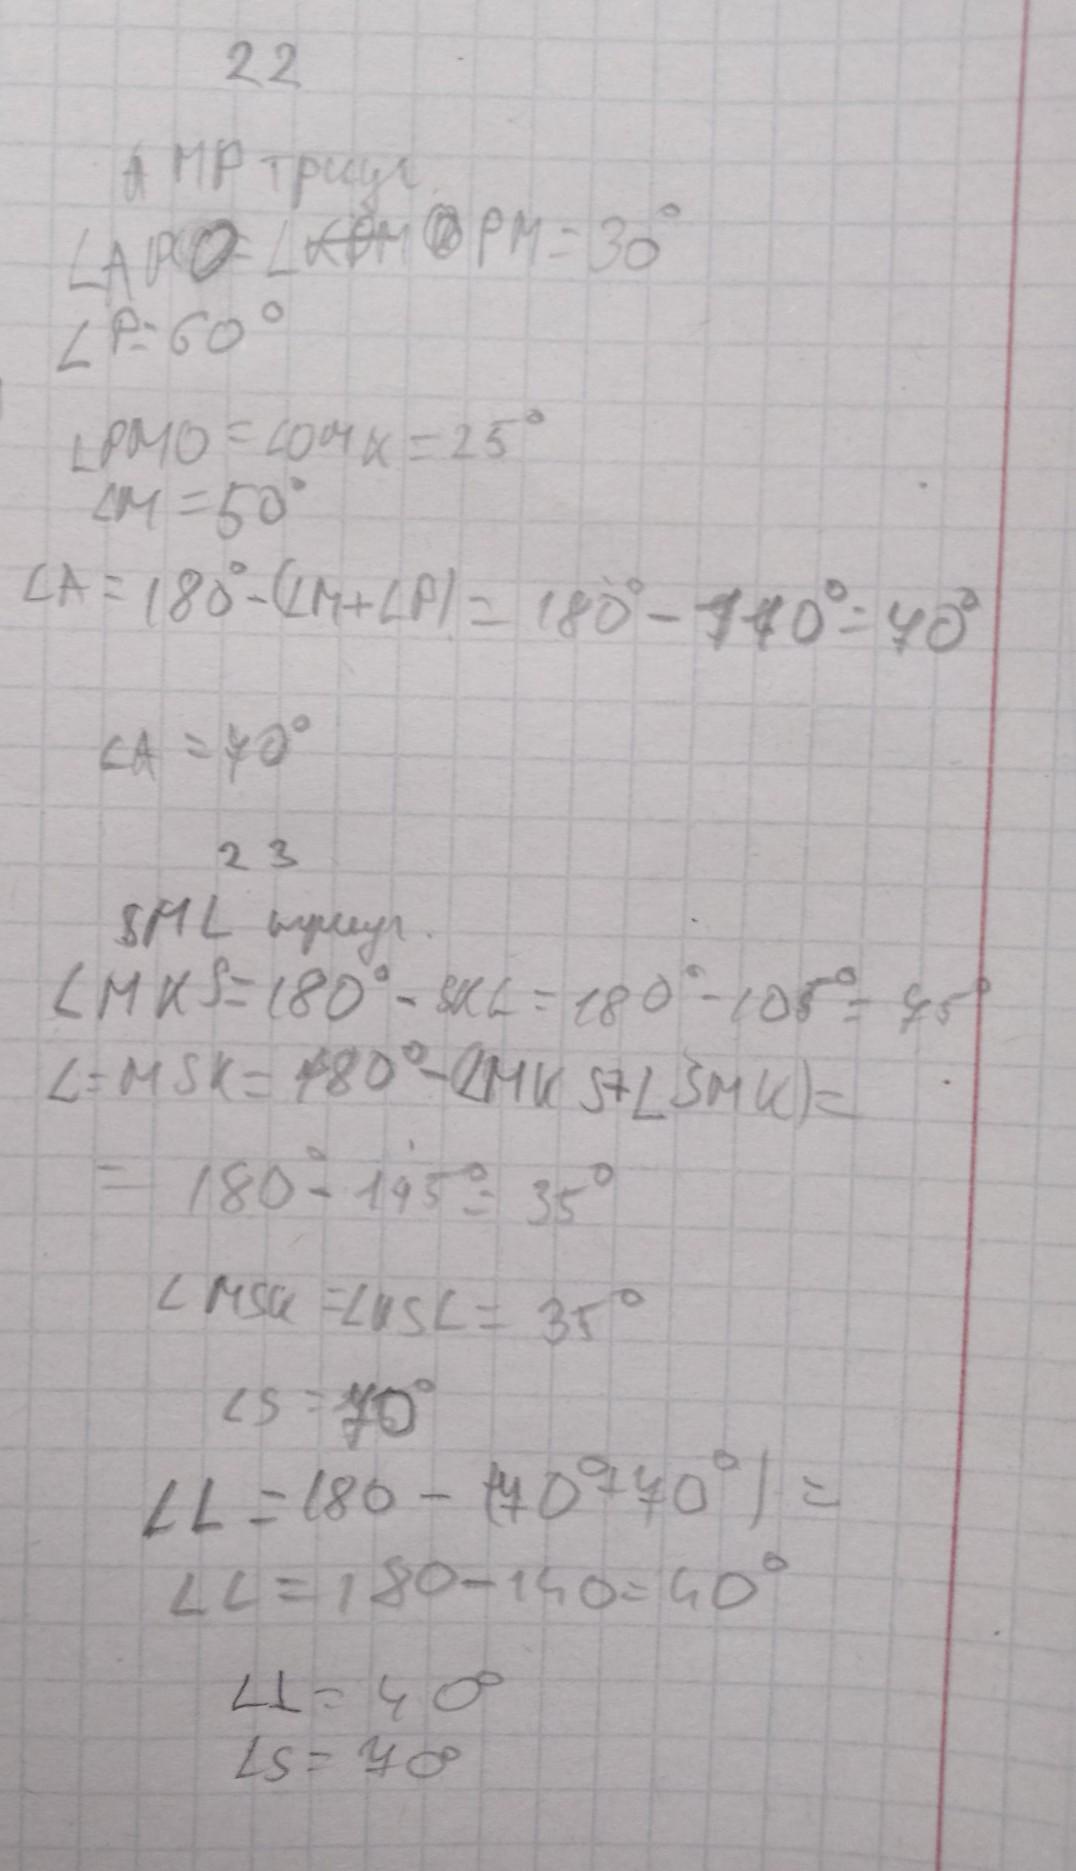 22
AMP триуг.
∠APO = ∠OPM = 30°
∠P = 60°
∠PMO = ∠OMK = 25°
∠M = 50°
∠A = 180° - (∠M + ∠P) = 180° - 110° = 70°
∠A = 70°
23
SML триуг.
∠MKS = 180° - SKL = 180° - 105° = 75°
∠ = MSK = 180° - (∠MKS + ∠SMK) =
= 180° - 145° = 35°
∠MSK = ∠KSL = 35°
∠S = 70°
∠L = 180 - (70° + 70°) =
∠L = 180 - 140 = 40°
∠L = 40°
∠S = 70°